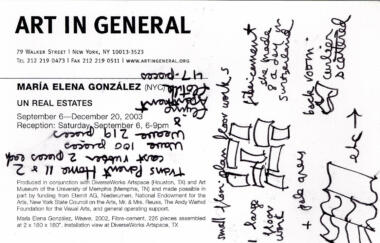 ART IN GENERAL
79 WALKER STREET | NEW YORK, NY 10013-3523
TEL 212 219 0473 | FAX 212 219 0511 | WWW.ARTINGENERAL.ORG
MARÍA ELENA GONZÁLEZ (NYC)
UN REAL ESTATES
September 6–December 20, 2003
Reception: Saturday, September 6, 6-9pm
Produced in conjunction with DiverseWorks Artspace (Houston, TX) and Art
Museum of the University of Memphis (Memphis, TN) and made possible in
part by funding from Eternit AG, Niederurnen, National Endowment for the
Arts, New York State Council on the Arts, Mr. & Mrs. Reuss, The Andy Warhol
Foundation for the Visual Arts, and general operating support.
María Elena González, Weave, 2002, Fibre-cement, 225 pieces assembled
at 2 x 180 x 180". Installation view at DiverseWorks Artspace, TX
47 pieces
Weave 219 pieces
100 pieces
cast rubber 2 pieces
Home II 2 &
small floor plan floor works
she made
a day in
Switzerland
back room:
scattered
etc →